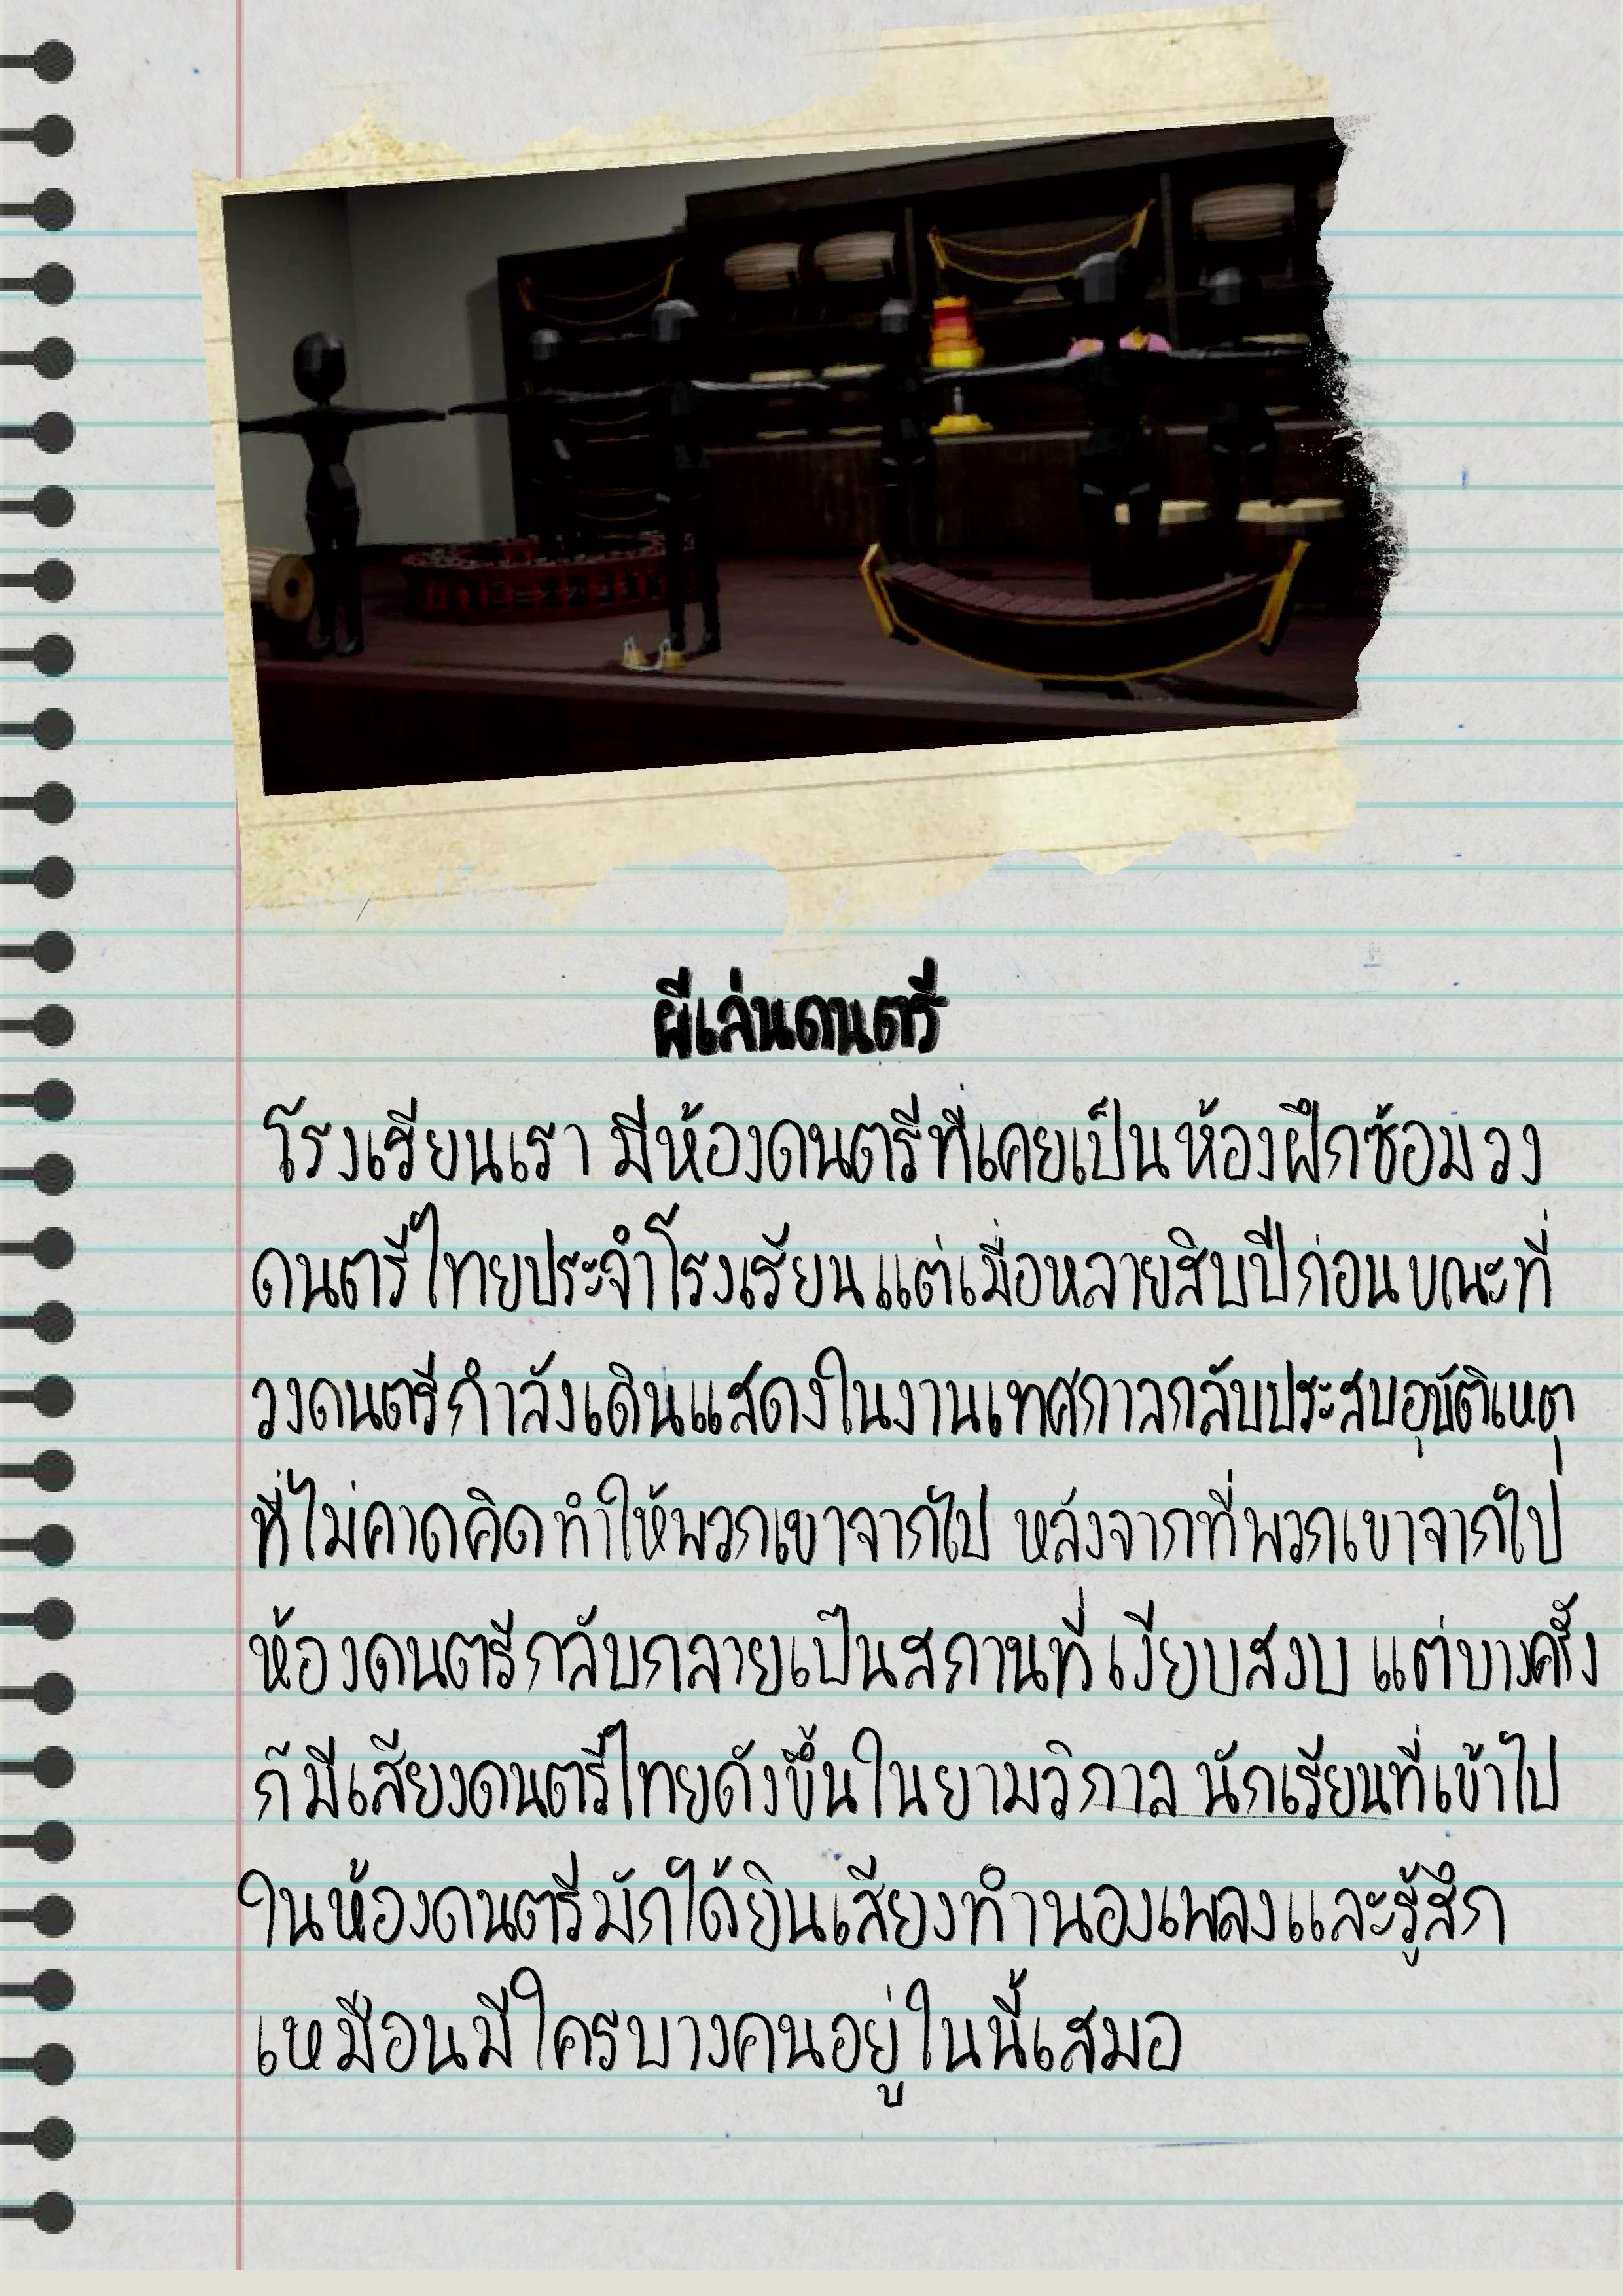 ผีเล่นดนตรี
โรงเรียนเรา มีห้องดนตรีที่เคยเป็นห้องฝึกซ้อมวง
ดนตรีไทยประจำโรงเรียน แต่เมื่อหลายสิบปีก่อน ขณะที่
วงดนตรีกำลังเดินแสดงในงานเทศกาลกลับประสบอุบัติเหตุ
ที่ไม่คาดคิด ทำให้พวกเขาจากไป หลังจากที่พวกเขาจากไป
ห้องดนตรีกลับกลายเป็นสถานที่เงียบสงบ แต่บางครั้ง
ก็มีเสียงดนตรีไทยดังขึ้นในยามวิกาล นักเรียนที่เข้าไป
ในห้องดนตรีมักได้ยินเสียงทำนองเพลงและรู้สึก
เหมือนมีใครบางคนอยู่ในนี้เสมอ